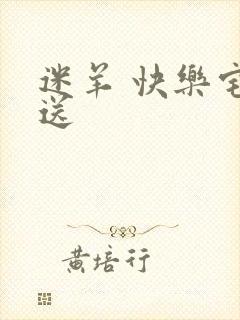 迷羊 快樂宅
送
黄培行